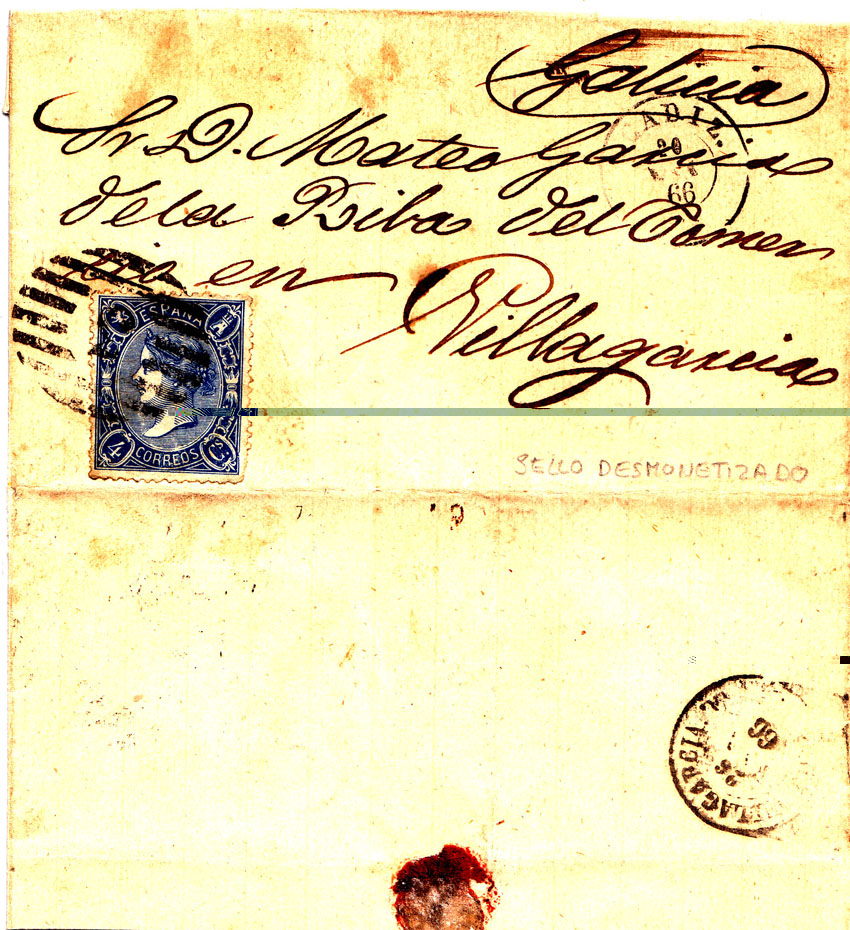 Galicia
CADIZ.
20
66
Sr. D. Mateo Garcia
de la Riba del Comer
cio en
Villagarcia
ESPAÑA
4 CORREOS Cs
SELLO DESMONETIZADO
VILLAGARCIA
26
66